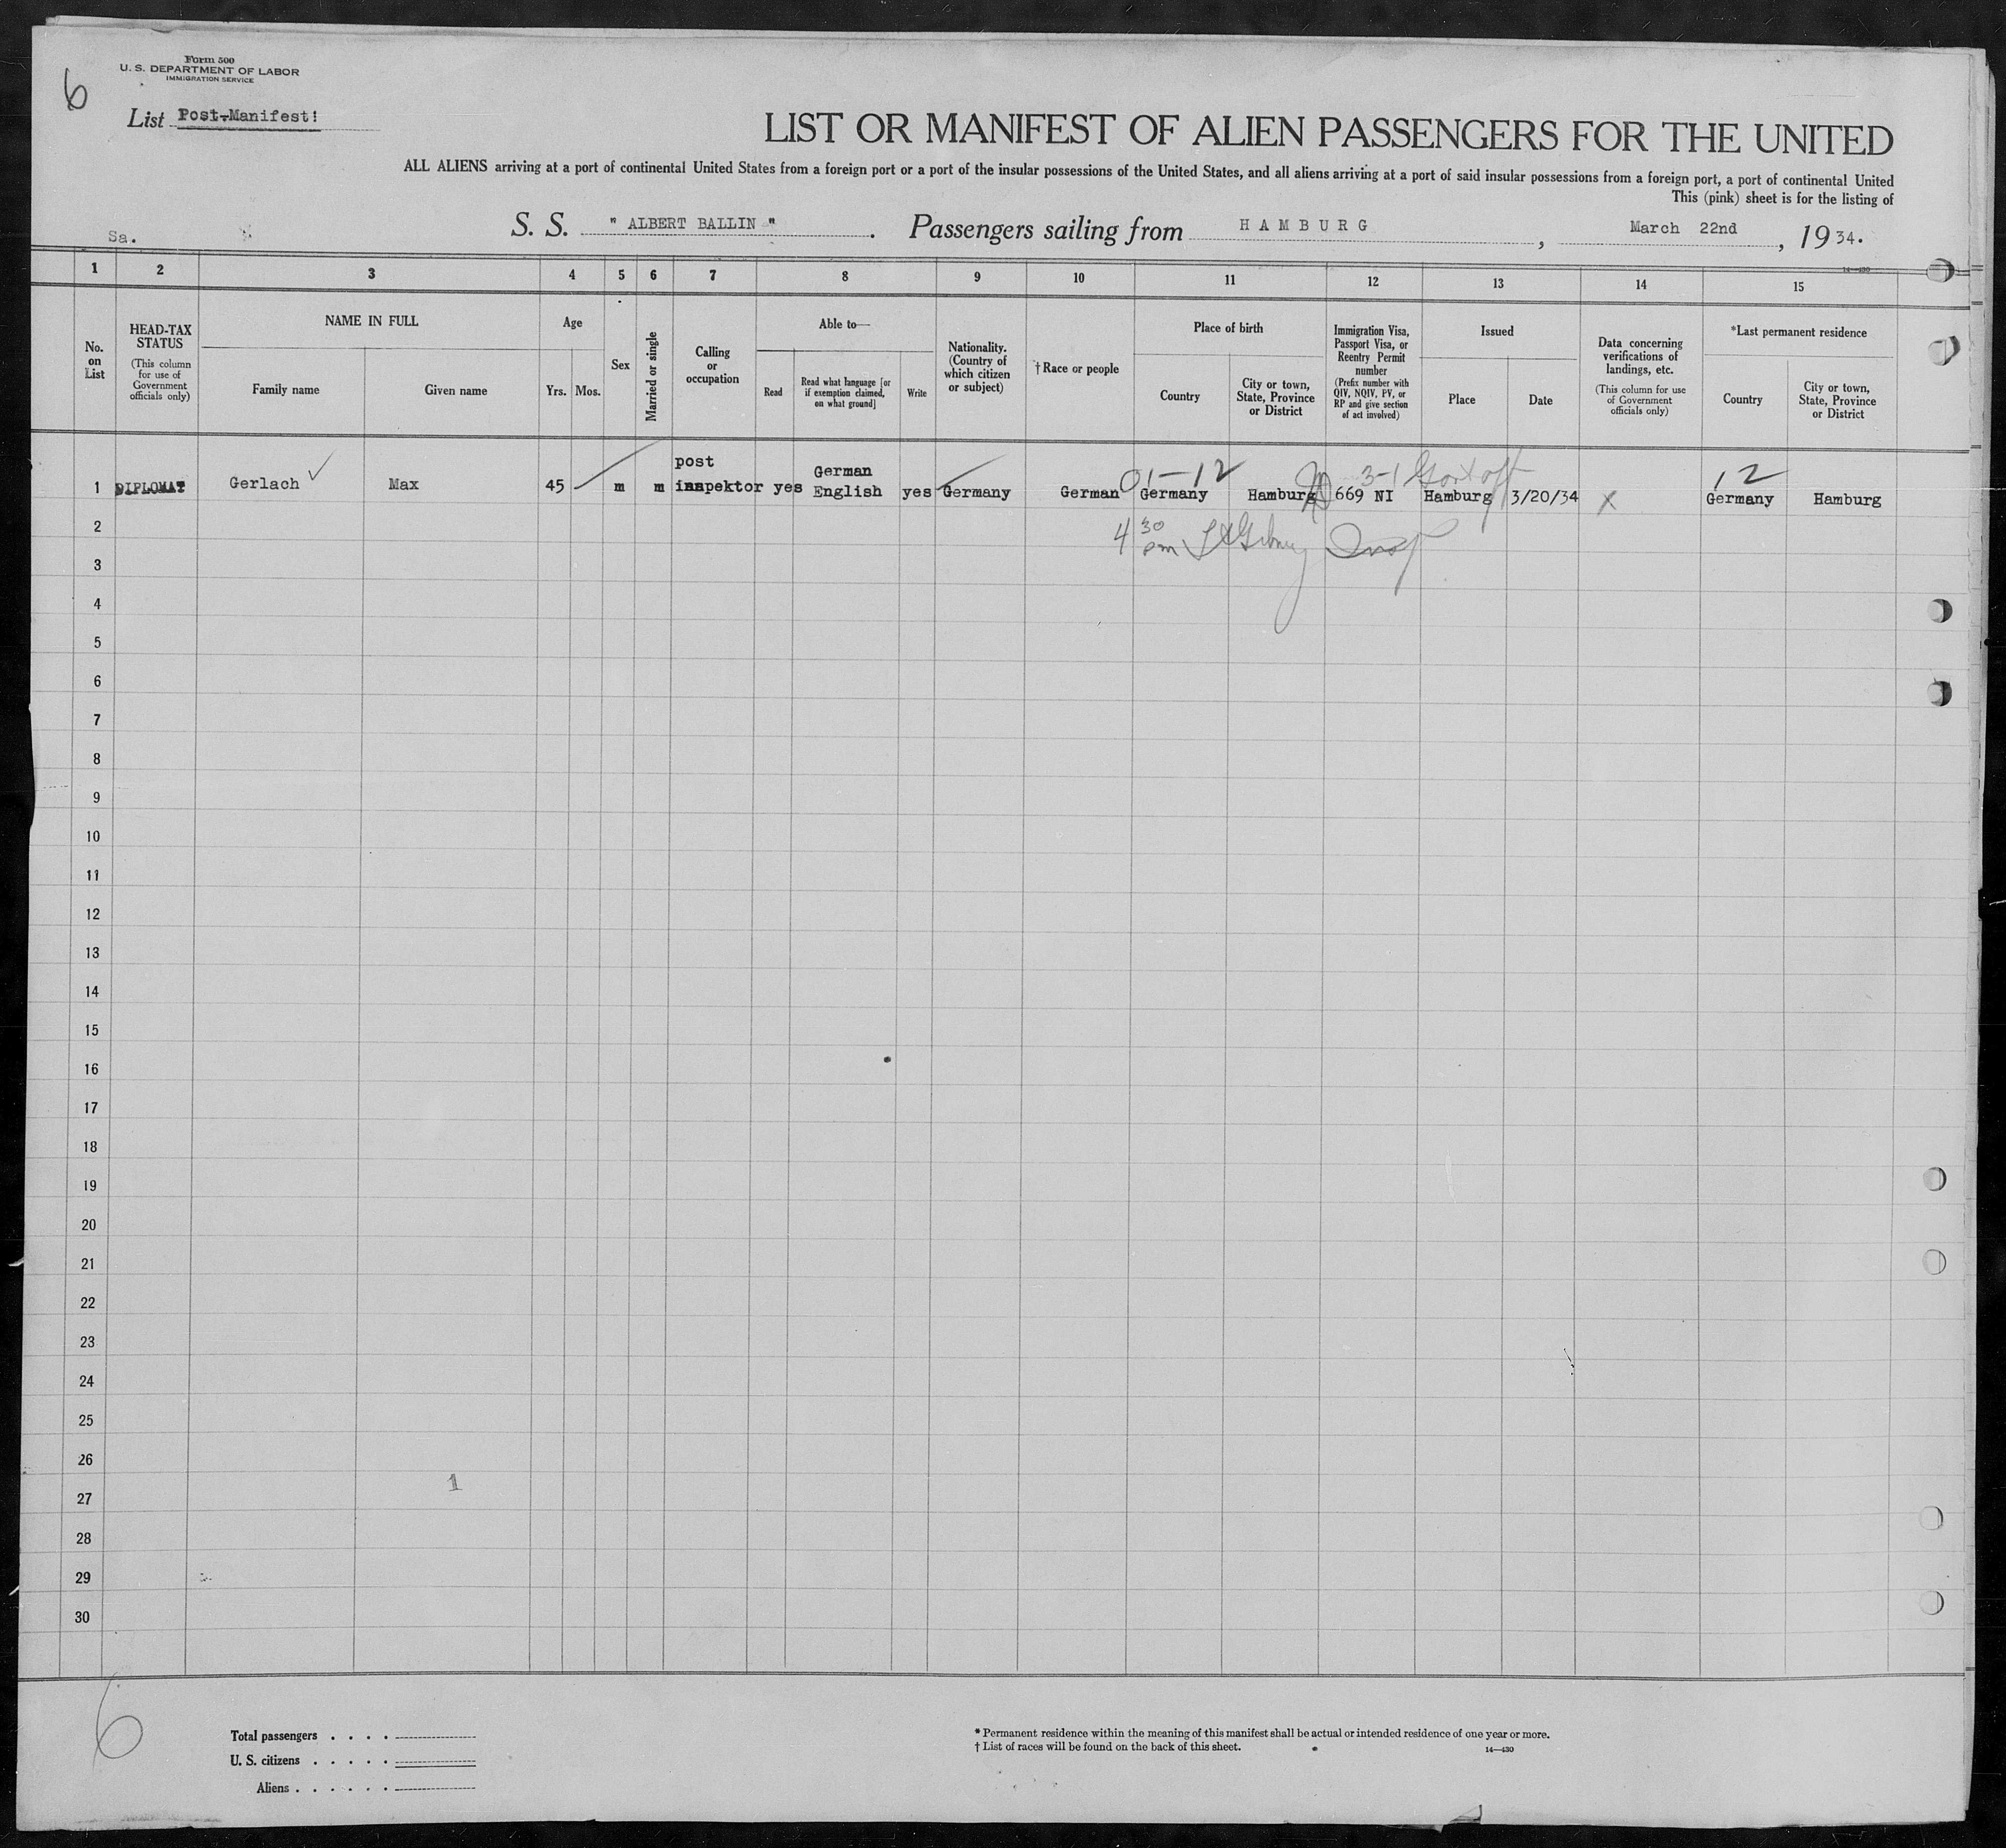 Form 500
U. S. DEPARTMENT OF LABOR
IMMIGRATION SERVICE
6
List Post-Manifest!
LIST OR MANIFEST OF ALIEN PASSENGERS FOR THE UNITED
ALL ALIENS arriving at a port of continental United States from a foreign port or a port of the insular possessions of the United States, and all aliens arriving at a port of said insular possessions from a foreign port, a port of continental United
This (pink) sheet is for the listing of
Sa.
S. S. " ALBERT BALLIN " . Passengers sailing from HAMBURG , March 22nd , 19 34.
14—430
1 2 3 4 5 6 7 8 9 10 11 12 13 14 15
No. on List
HEAD-TAX STATUS
(This column for use of Government officials only)
NAME IN FULL
Family name
Given name
Age
Yrs. Mos.
Sex
Married or single
Calling or occupation
Able to—
Read
Read what language [or if exemption claimed, on what ground]
Write
Nationality. (Country of which citizen or subject)
†Race or people
Place of birth
Country
City or town, State, Province or District
Immigration Visa, Passport Visa, or Reentry Permit number
(Prefix number with QIV, NQIV, PV, or RP and give section of act involved)
Issued
Place
Date
Data concerning verifications of landings, etc.
(This column for use of Government officials only)
*Last permanent residence
Country
City or town, State, Province or District
01-12 3-1 12
1 DIPLOMAT Gerlach Max 45 m m post inspektor yes German English yes Germany German Germany Hamburg 669 NI Hamburg 3/20/34 X Germany Hamburg
2
4 30 pm Insp
3
4
5
6
7
8
9
10
11
12
13
14
15
16
17
18
19
20
21
22
23
24
25
26
1
27
28
29
30
6
Total passengers . . . .
U. S. citizens . . . . .
Aliens . . . . . .
* Permanent residence within the meaning of this manifest shall be actual or intended residence of one year or more.
† List of races will be found on the back of this sheet.
14—430